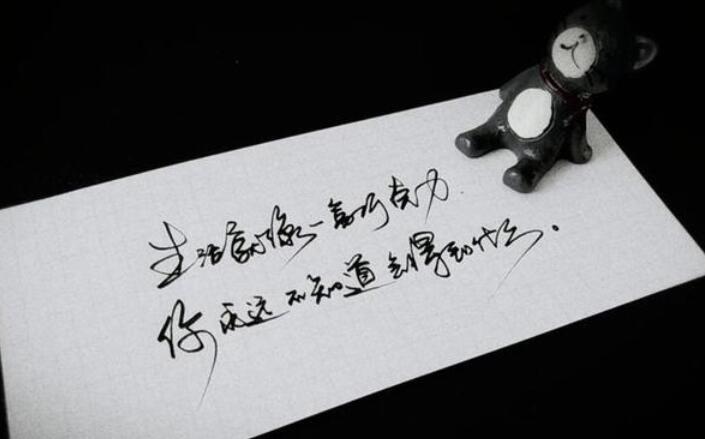 生活就像一盒巧克力.
你永远不知道会得到什么。